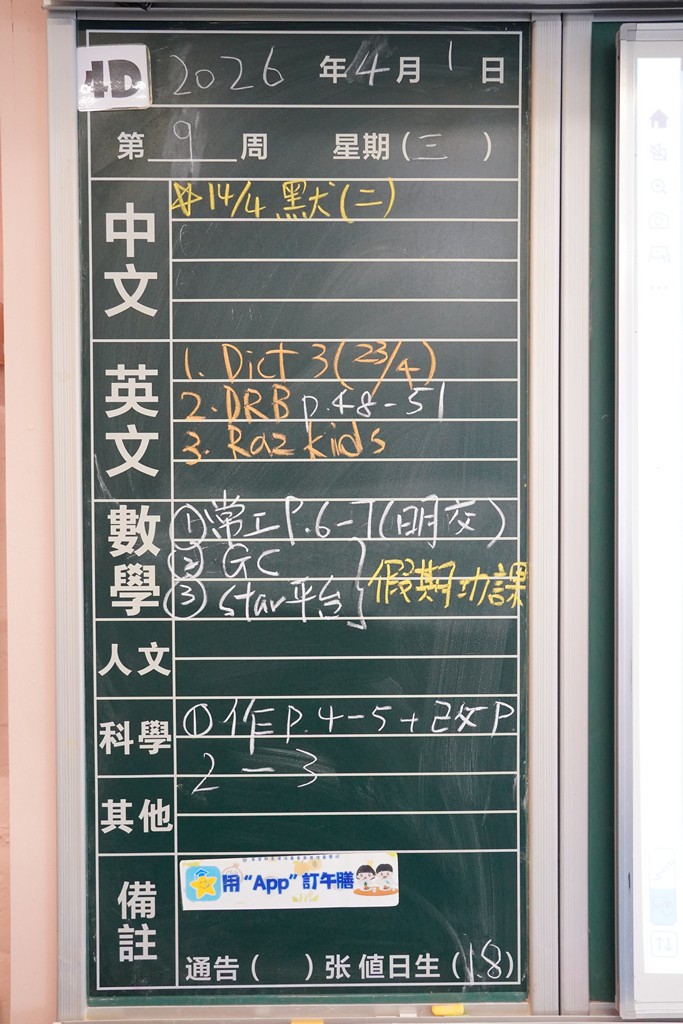 4D
2026 年 4 月 1 日
第 9 周 星期 (三)
中文
☆14/4 默(二)
英文
1. Dict 3 (23/4)
2. DRB p.48-51
3. Raz kids
數學
① 常工 P.6-7 (明交)
② GC
③ Star平台
假期功課
人文
科學
① 作 P.4-5 + 改 P.
2-3
其他
備註
用 “App” 訂午膳
通告 ( ) 张 值日生 (18)